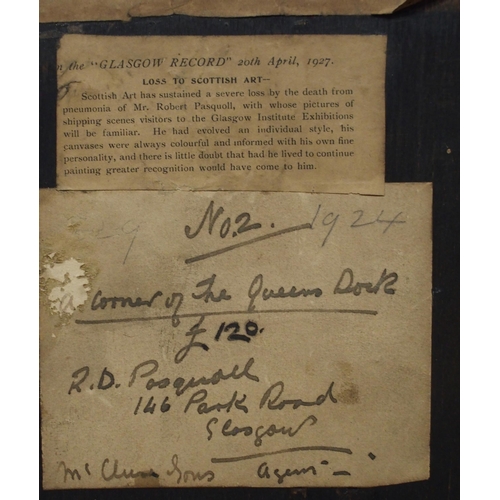 the "GLASGOW RECORD" 20th April, 1927.
LOSS TO SCOTTISH ART—
Scottish Art has sustained a severe loss by the death from
pneumonia of Mr. Robert Pasquoll, with whose pictures of
shipping scenes visitors to the Glasgow Institute Exhibitions
will be familiar. He had evolved an individual style, his
canvases were always colourful and informed with his own fine
personality, and there is little doubt that had he lived to continue
painting greater recognition would have come to him.
No. 2. 1924
a corner of the Queens Dock
£120.
R.D. Pasquoll
146 Park Road
Glasgow
Mc Clure Sons Agents